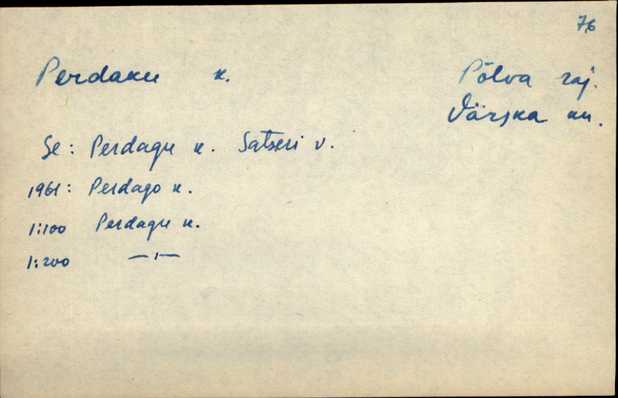 76
Perdaku k.
Põlva raj.
Värska kn.
Se: Perdagu k. Satseri v.
1961: Perdago k.
1:100 Perdagu k.
1:200 —"—